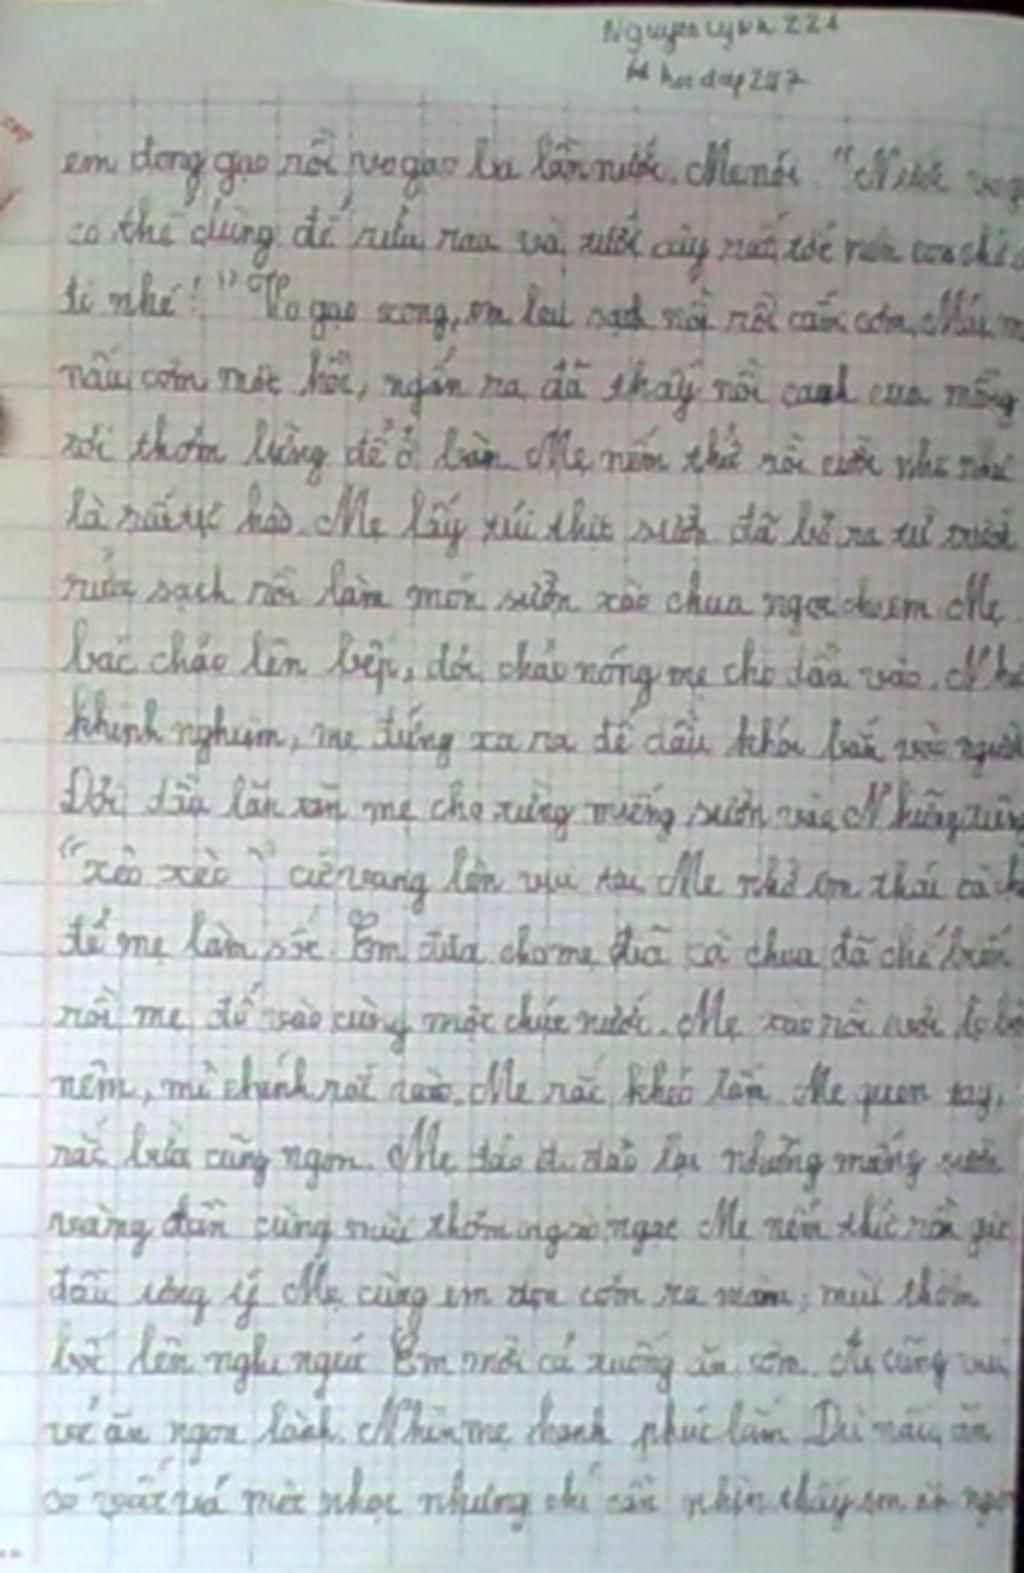 Nguyenlynk221
hoidap247
em đong gạo rồi vo gạo ba lần nước. Mẹ nói "Nước
có thể dùng để rửa rau và tưới cây rất tốt nên con chú
ý nhé!" Vo gạo xong, em lau sạch nồi rồi cắm cơm.
nấu cơm một hồi, ngoảnh ra đã thấy nồi canh cua mồng
tơi thơm lừng để ở bàn. Mẹ nếm thử rồi cười nhẹ như
là rất tự hào. Mẹ lấy túi thịt sườn đã bỏ ra từ trước
rửa sạch rồi làm món sườn xào chua ngọt cho em. Mẹ
bắc chảo lên bếp, đợi chảo nóng mẹ cho dầu vào. Như
kinh nghiệm, mẹ đứng xa ra để dầu khỏi bắn vào người
Đợi dầu lăn tăn mẹ cho từng miếng sườn vào. Những tiếng
"xèo xèo" cứ vang lên vui tai. Mẹ nhờ em thái cà
để mẹ làm sốt. Em đưa cho mẹ đĩa cà chua đã chế biến
rồi mẹ đổ vào cùng một chút nước. Mẹ xào rồi
nêm, mì chính rồi Mẹ rất khéo Mẹ quen tay,
bữa cũng ngon. Mẹ đảo đi đảo lại những miếng sườn
vàng dần cùng mùi thơm ngào ngạt. Mẹ nếm thử rồi gật
đầu ưng ý. Mẹ cùng em dọn cơm ra mâm, mùi thơm
bốc lên nghi ngút. Em mời cả xuống ăn cơm. Ai cũng vui
vẻ ăn ngon lành. Nhìn mẹ hạnh phúc lắm. Dù nấu ăn
có vất vả mệt nhọc nhưng chỉ cần nhìn thấy em ăn ngon